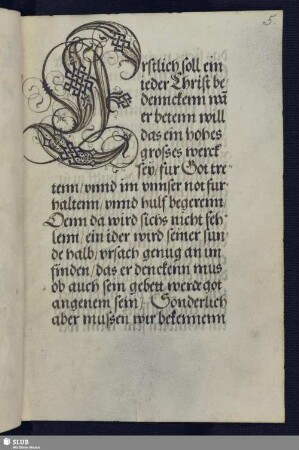 5.
Erstlich soll ein
ieder Christ be
dennckenn wā
er betenn will
das ein hohes
grosses werck
sey/ fur Got tre
tenn/ vnnd im vnnser not fur
haltenn/ vnnd hulf begerenn/
Denn da wird sichs nicht feh
lenn/ ein ider wird seiner sun
de halb/ vrsach genug an im
finden/ das er denckenn mus
ob auch sein gebett werde got
angenem sein/ Sonderlich
aber mussen wir bekennenn
SLUB
Wir führen Wissen.